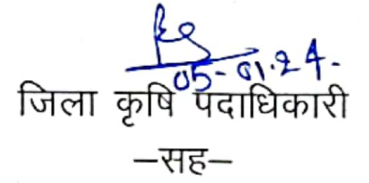 05-01-24.
जिला कृषि पदाधिकारी
–सह–